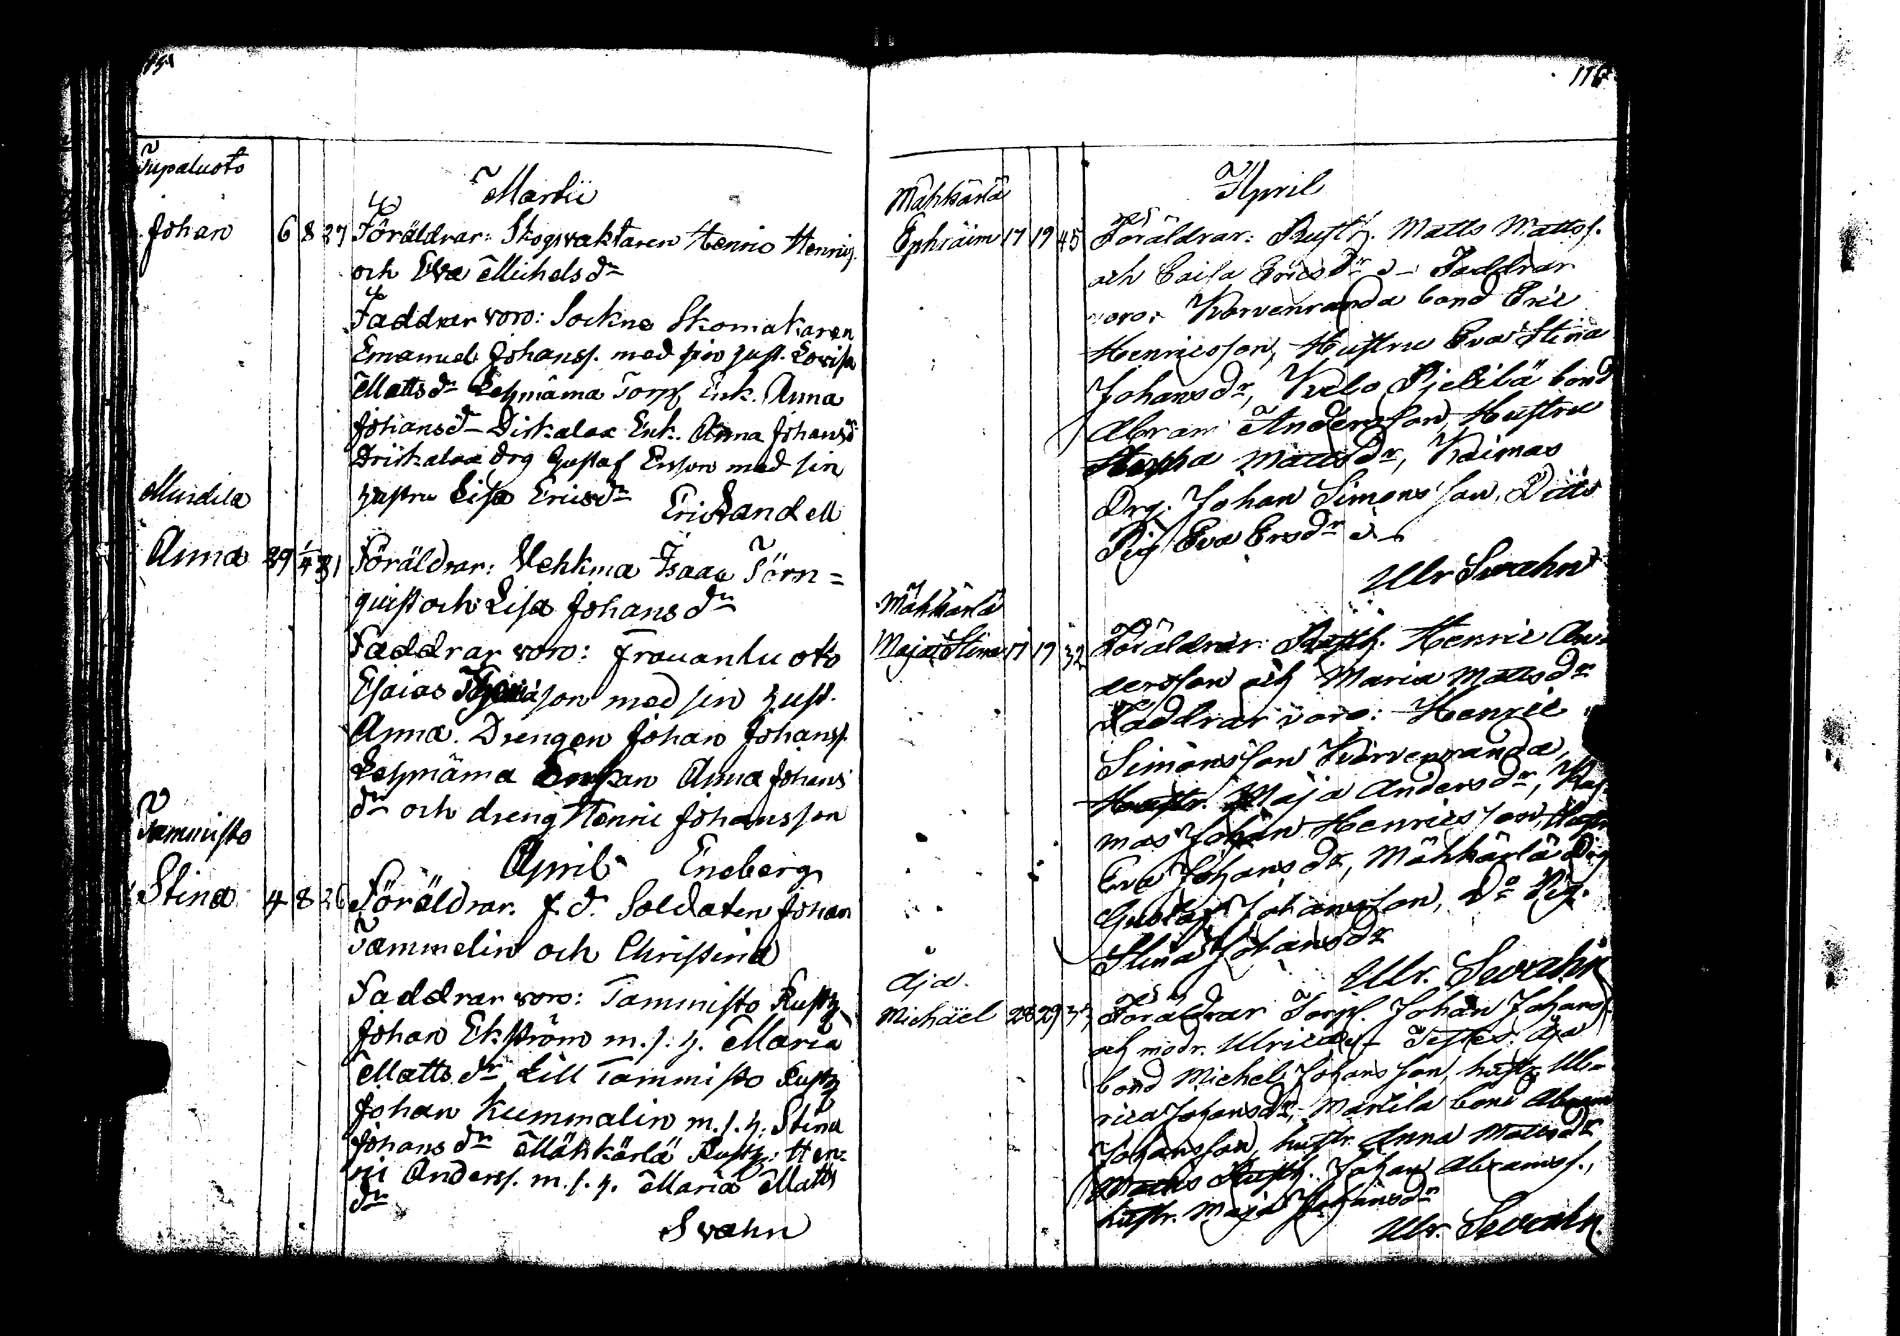 Martii
Johan 6 8 27 Föräldrar: Skogvaktaren Henric Henrics.
och Eva Michelsdr
Faddrar voro: Sockne Skomakaren
Emanuel Johanss. med sin hust. Lovisa
Mattsdr Torp. Enk. Anna
Johansd Enk. Anna Johansd
drg Gustaf Ersson med sin
hustru Lisa Ericsdr Eric Sandell
Anna 29 1/4 31 Föräldrar: Vehkma Isaac Törn=
quist och Lisa Johansdr
Faddrar voro:
Esaias med sin hust.
Anna. Drengen Johan Johanss.
Enkan Anna Johans
dr och dreng Henric Johansson
April Eneberg
Tammisto
Stina 4 8 26 Föräldrar. f.d. Soldaten Johan
Tammelin och Christina
Faddrar voro: Tammisto Rusth.
Johan Ekström m.s.h. Maria
Mattsdr Lill Tammisto Rusth
Johan Kummalin m.s.h. Stina
Johansdr Mähkärlä Rusth: Hen-
ric Anderss. m.s.h. Maria Matts
dr
Svahn
116
April
Mähkärlä
Ephraim 17 19 45 Föräldrar: Rusth. Matts Mattss.
och Caisa Ericsdr Faddrar
voro: Korvenranda bond Eric
Henricsson, Hustru Eva Stina
Johansdr, bond
Abram Andersson, Hustru
Mattsdr, Kaimas
Drg. Johan Simonsson, Dito
Pig Eva Ersdr
Ulr Svahn
Mähkärlä
Maja Stina 17 19 32 Föräldrar: Rusth. Henric An-
dersson och Maria Mattsdr
Faddrar voro: Henric
Simonsson Korvenranda,
Hustr. Maja Andersdr, Kai-
mas Johan Henricsson, Hustr
Eva Johansdr, Mähkärlä Drg
Gustaf Johansson, Do Pig.
Stina Johansdr
Ulr. Svahn
Aja.
Michäel 28 29 Föräldrar Torp. Johan Johans
och modr. Ulrica Testes: Aja
bond Michel Johansson, hustr Ul-
rica Johansdr, Martila bond Abram
Johansson, hustr. Anna Mattsdr
Rusth. Johan Abramss.,
hustr. Maja Johansdr
Ulr. Svahn.